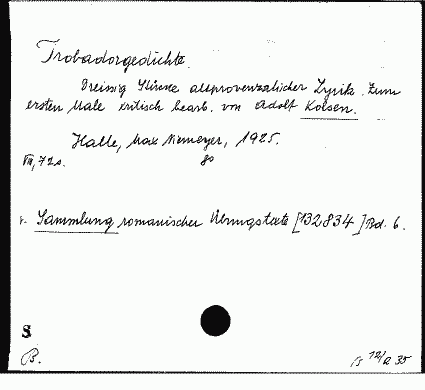 Trobadorgedichte.
Dreissig Stücke altprovenzalischer Lyrik. Zum
ersten Male kritisch bearb. von Adolf Kolsen.
Halle, Max Niemeyer, 1925.
VII, 72 s. 8o
Sammlung romanischer Übungstexte [132834] Bd. 6.
S
B.
12/a 35